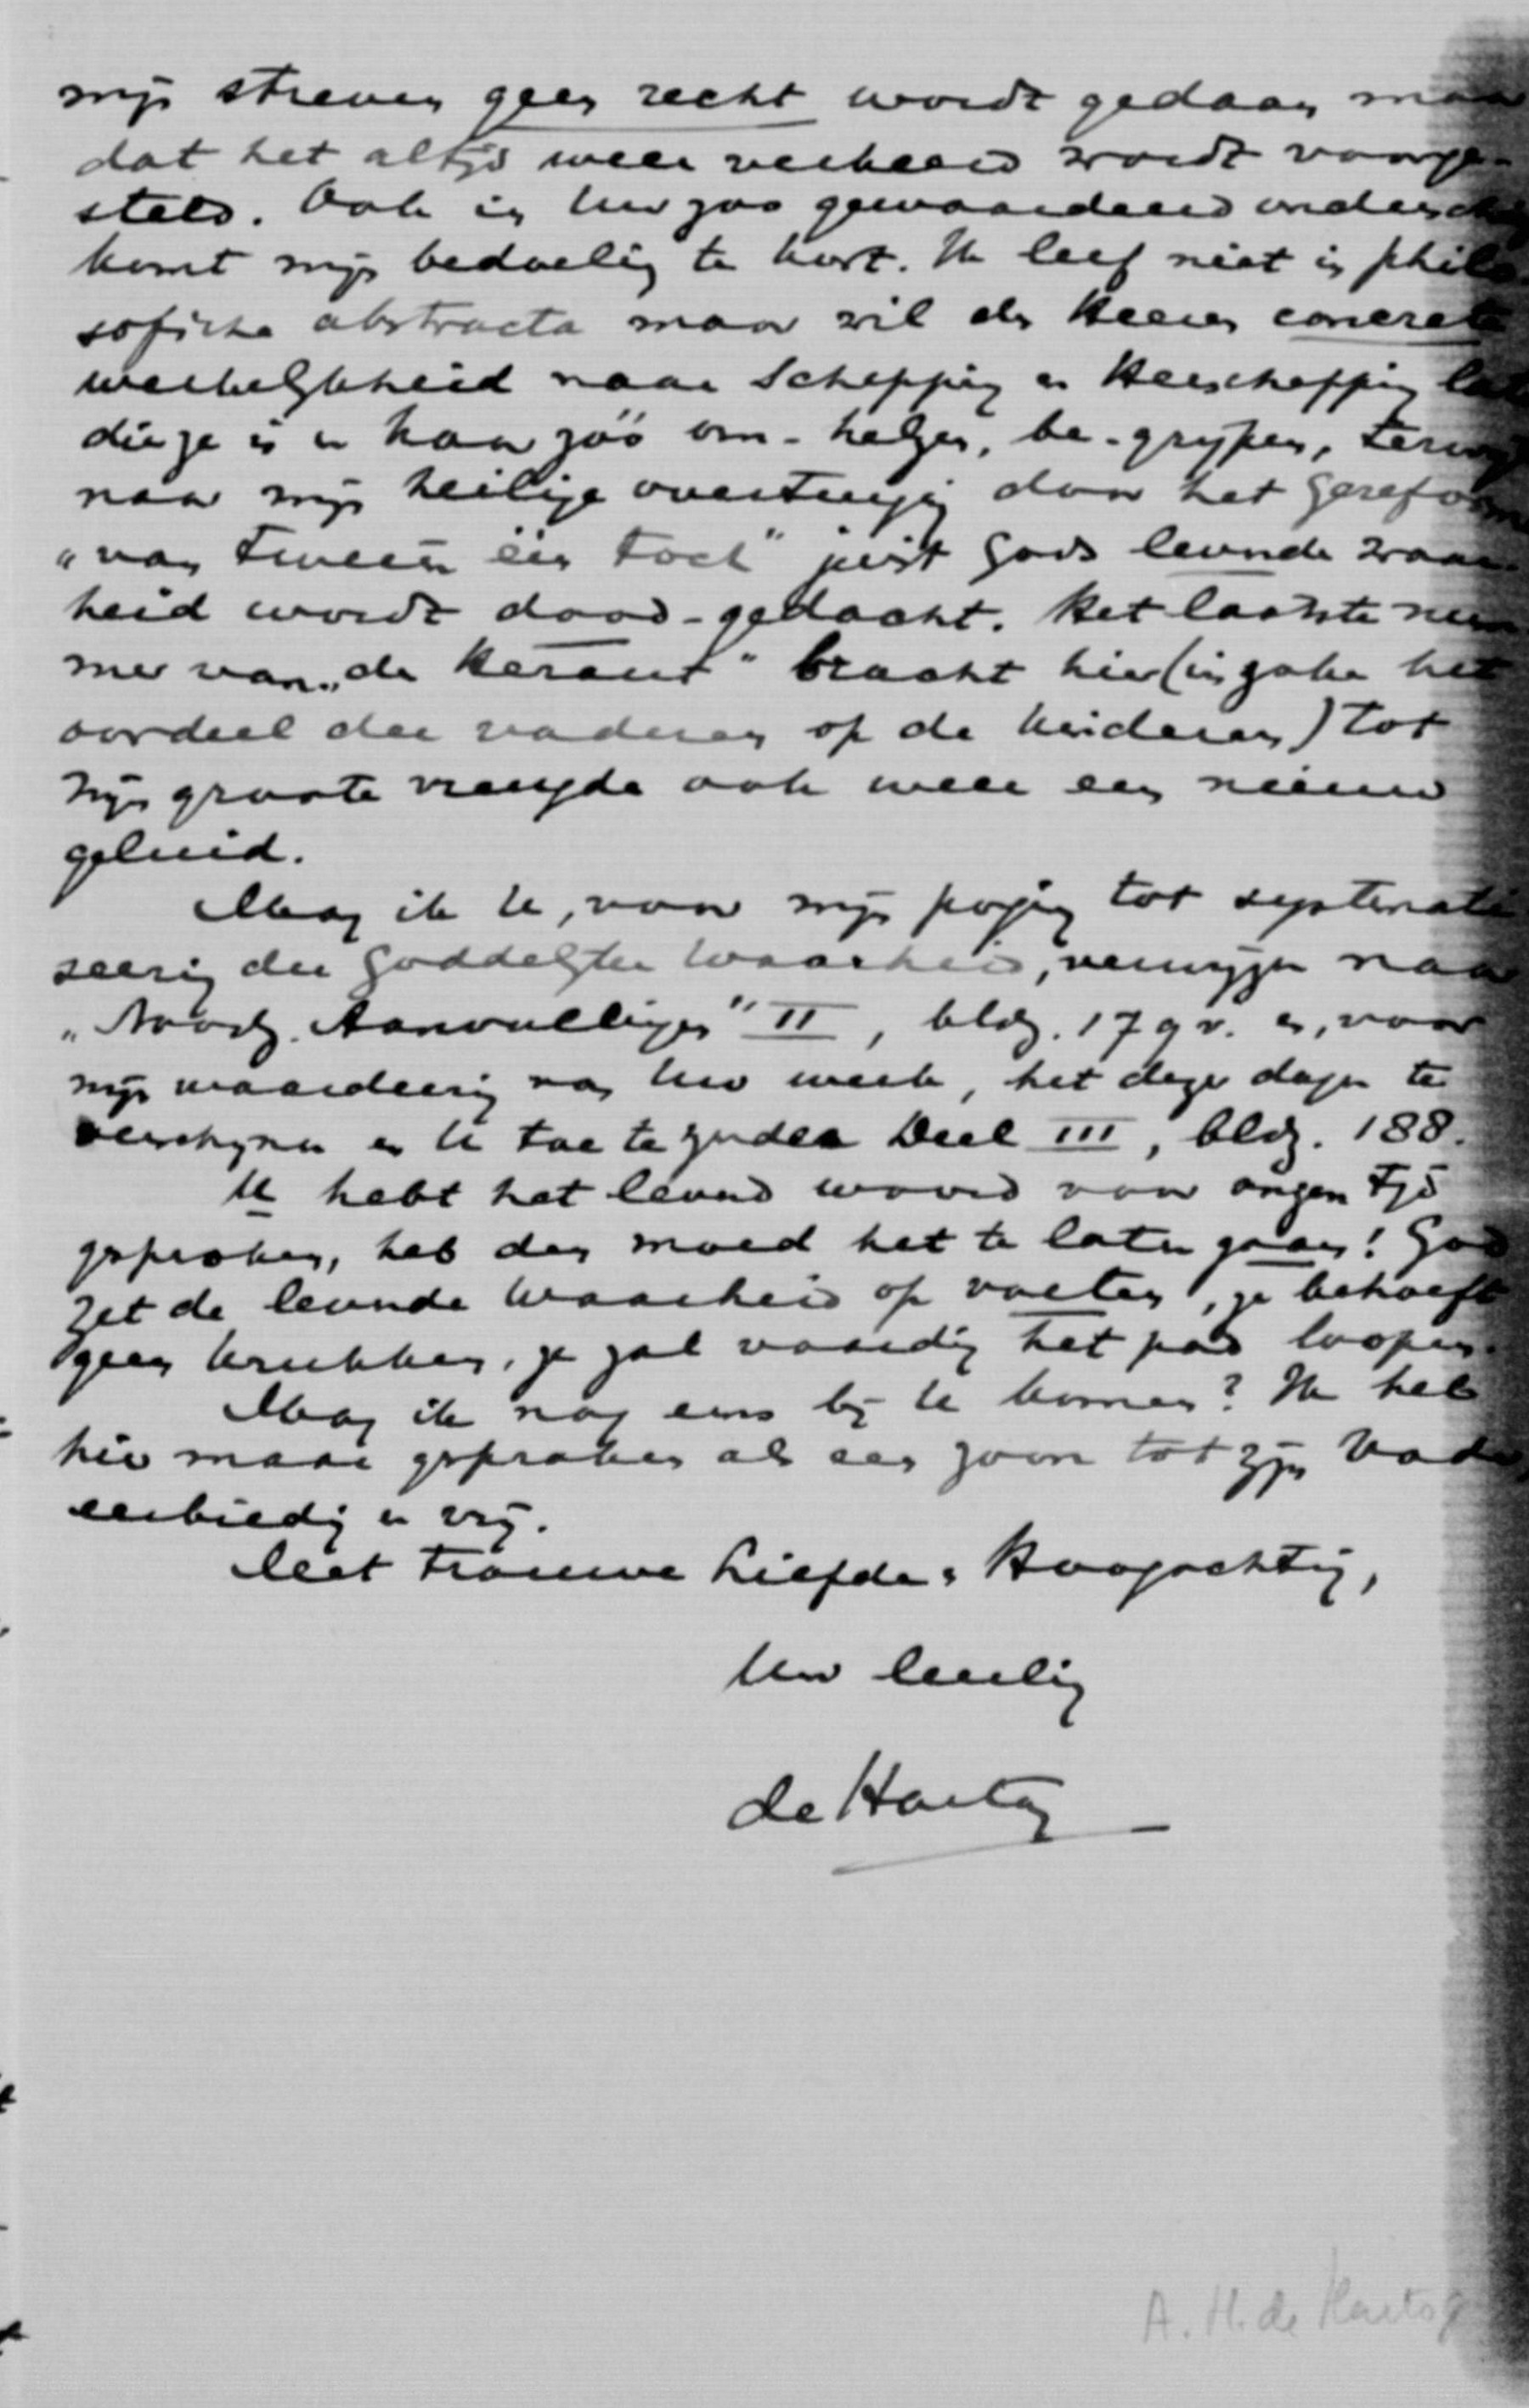 mijn streven geen recht wordt gedaan maar
dat het altijd weer verkeerd wordt voorge-
steld. Ook in Uw zoo gewaardeerd onderschr
komt mijn bedoeling te kort. Ik leef niet in philo
sofische abstracta maar wil des Heeren concrete
werkelijkheid naar Schepping en Herschepping
die ze is en haar zóó om-helzen, be-grijpen, terwijl
naar mijn heilige overtuiging door het Gereform
„van tweeën één toch" juist Gods levende waar-
heid wordt dood-gedacht. Het laatste num
mer van „de Heraut" bracht hier (inzake het
oordeel der vaderen op de kinderen) tot
mijn groote vreugde ook weer een nieuw
geluid.
Mag ik U, voor mijn poging tot systemati
seering der Goddelijke Waarheid, verwijzen naar
„Noodz. Aanvullingen" II, bldz. 179 v. en, voor
mijn waardeering van Uw werk, het dezer dagen te
verschijnen en U toe te zenden Deel III, bldz. 188.
U hebt het levend woord voor onzen tijd
gesproken, heb den moed het te laten gaan! God
zet de levende Waarheid op voeten, ze behoeft
geen krukken, ze zal vaardig het pad loopen.
Mag ik nog eens bij U komen? Ik heb
hier maar gesproken als een zoon tot zijn Vader,
eerbiedig en vrij.
Met trouwe Liefde en Hoogachting,
Uw leerling
de Hartog
A. H. de Hartog